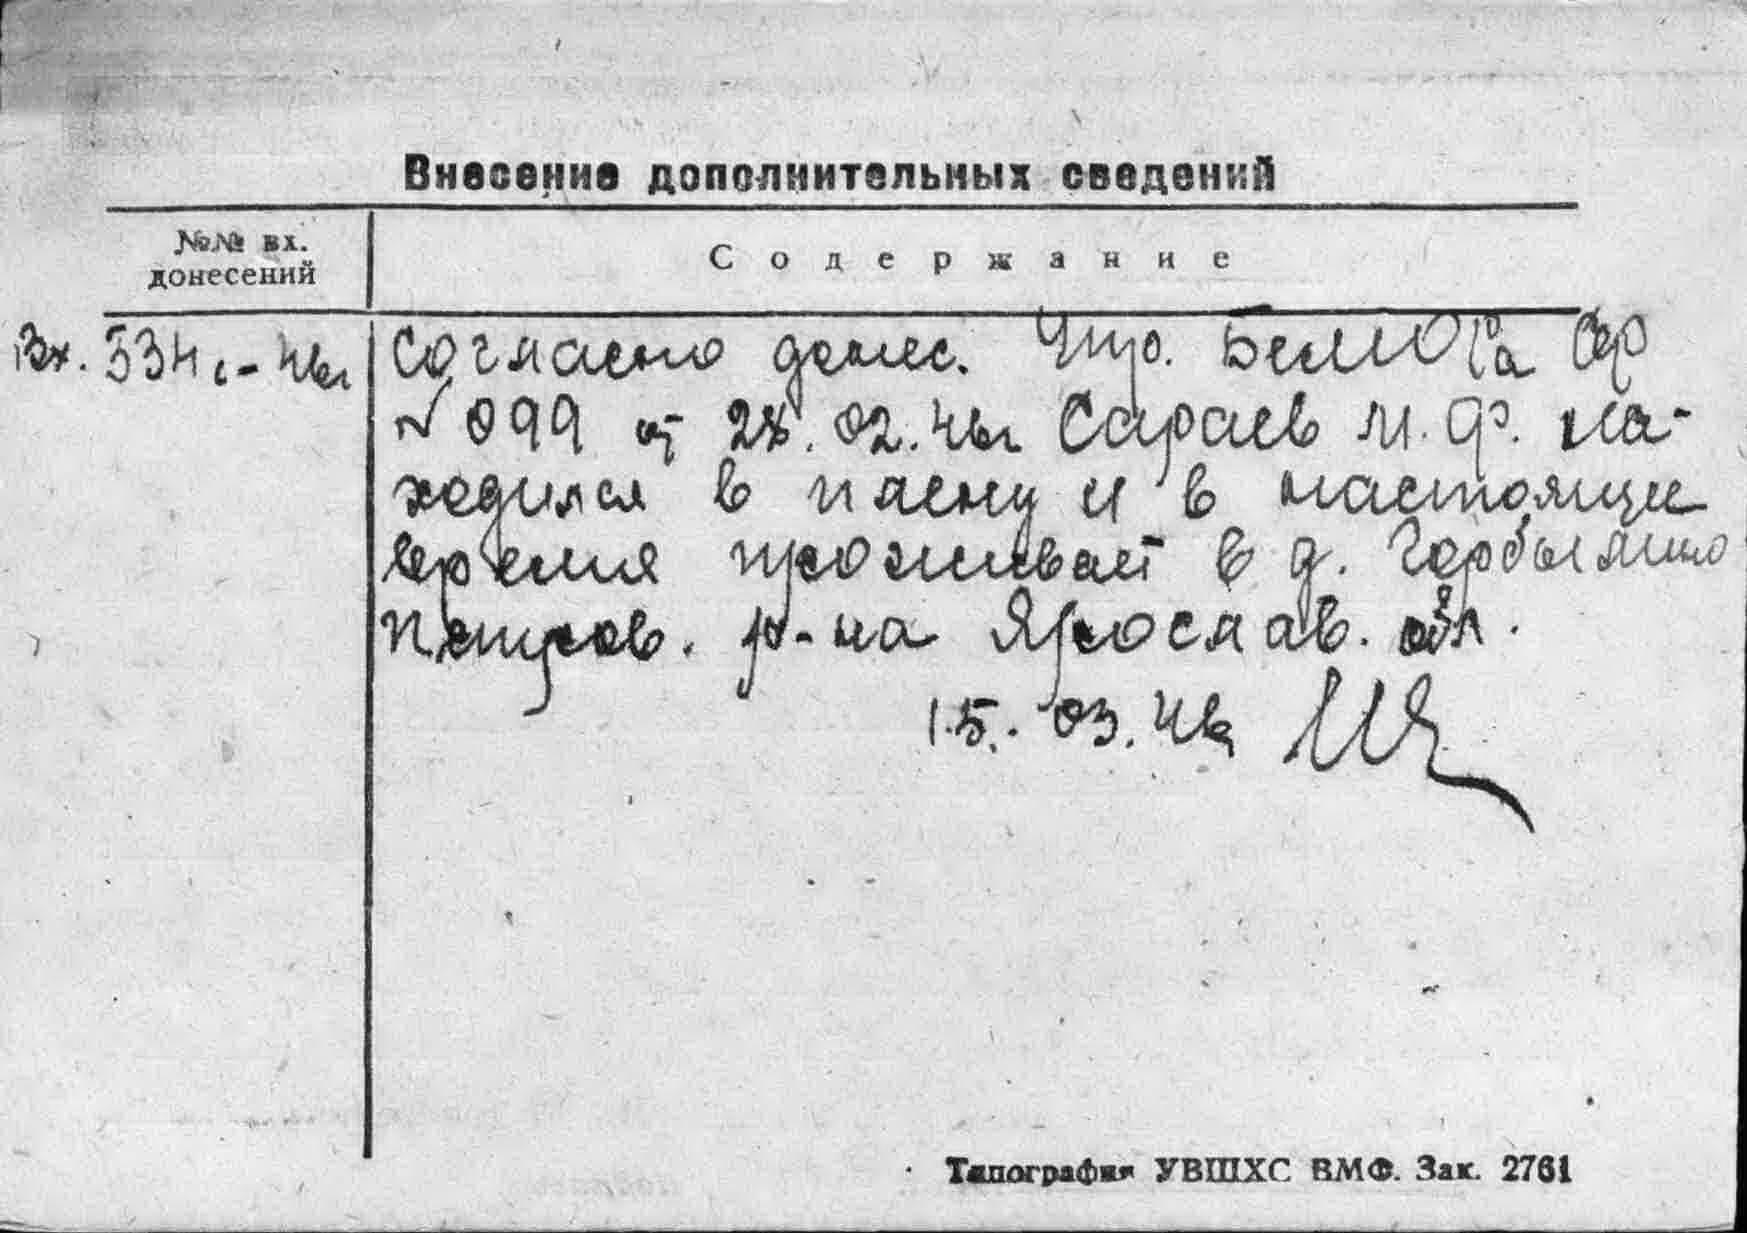 Внесение дополнительных сведений
№№ вх.
донесений
Содержание
Вх. 534с-46г
Согласно донес. Упр. БелМОРа Сер
№ 099 от 28.02.46г Сараев М.Ф. на-
ходился в плену и в настоящее
время проживает в д. Горбынино
Петров. р-на Ярослав. обл.
15.03.46
Типография УВШХС ВМФ. Зак. 2761